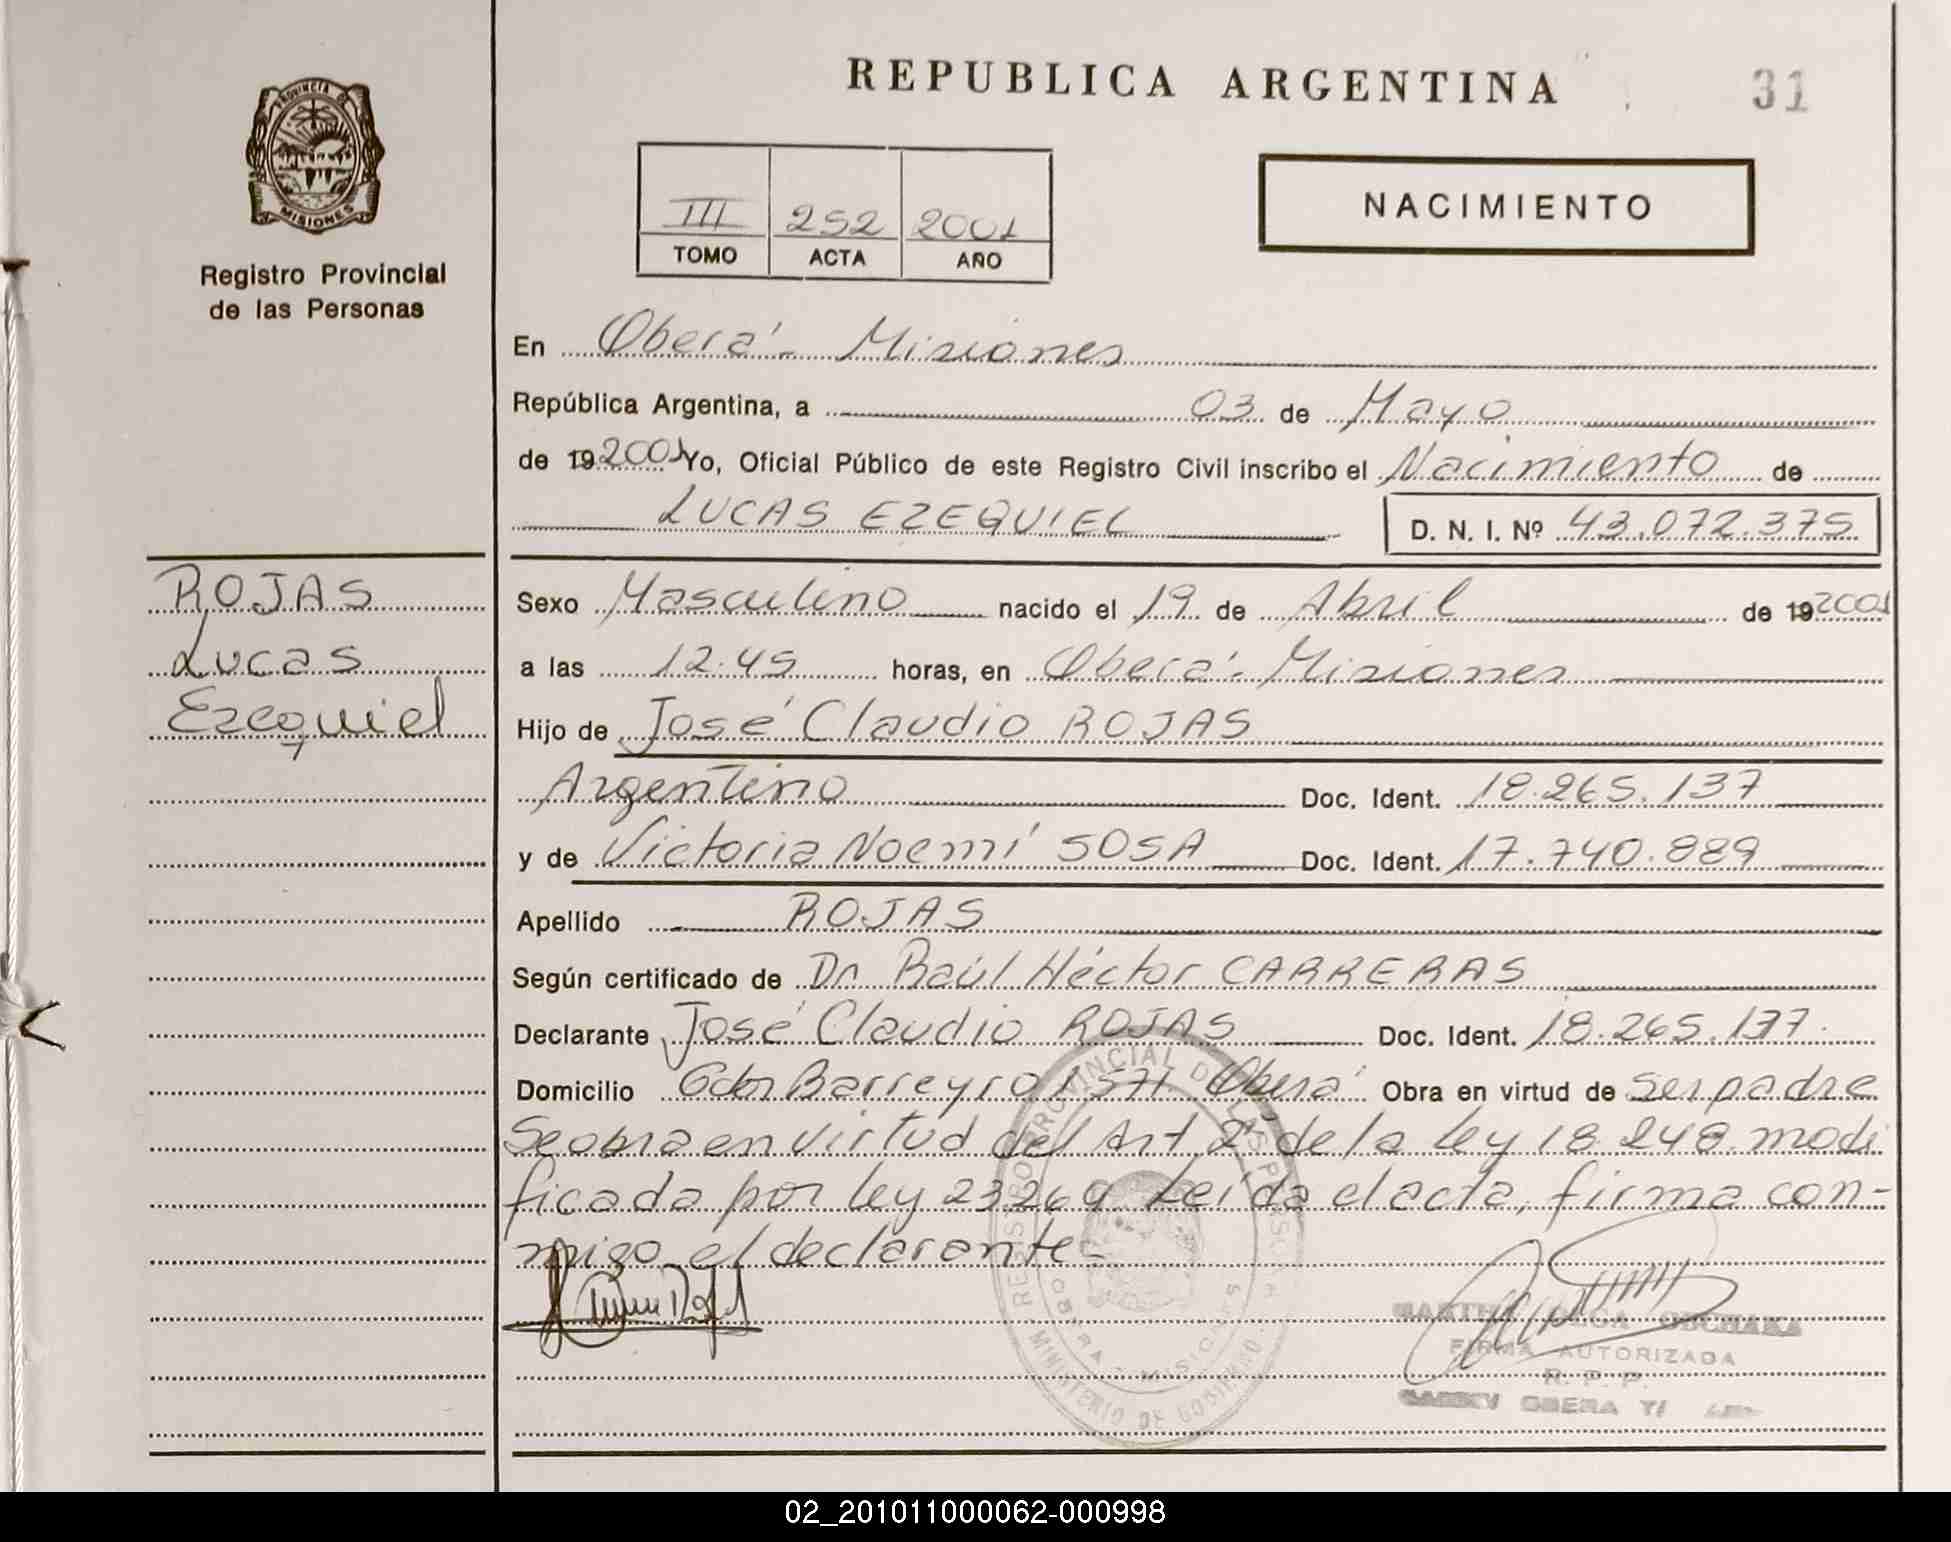 REPUBLICA ARGENTINA
31
PROVINCIA DE
MISIONES
Registro Provincial
de las Personas
III 252 2001
TOMO ACTA AÑO
NACIMIENTO
En Oberá - Misiones
República Argentina, a 03 de Mayo
de 19 2001 Yo, Oficial Público de este Registro Civil inscribo el Nacimiento de
LUCAS EZEQUIEL D. N. I. Nº 43.072.375
ROJAS
Lucas
Ezequiel
Sexo Masculino nacido el 19 de Abril de 19 2001
a las 12.45 horas, en Oberá - Misiones
Hijo de José Claudio ROJAS
Argentino Doc. Ident. 18.265.137
y de Victoria Noemí SOSA Doc. Ident. 17.740.889
Apellido ROJAS
Según certificado de Dr Raúl Héctor CARRERAS
Declarante José Claudio ROJAS Doc. Ident. 18.265.137.
Domicilio Gdor Barreyro 1571 Oberá Obra en virtud de ser padre
Se obra en virtud del Art 2º de la ley 18.248. modi
ficada por ley 23.264 Leída el acta, firma con-
migo el declarante-
REGISTRO PROVINCIAL DE LAS PERSONAS
OBERA - MISIONES
MINISTERIO DE GOBIERNO
FIRMA AUTORIZADA
R. P. P.
OBERA
02_201011000062-000998